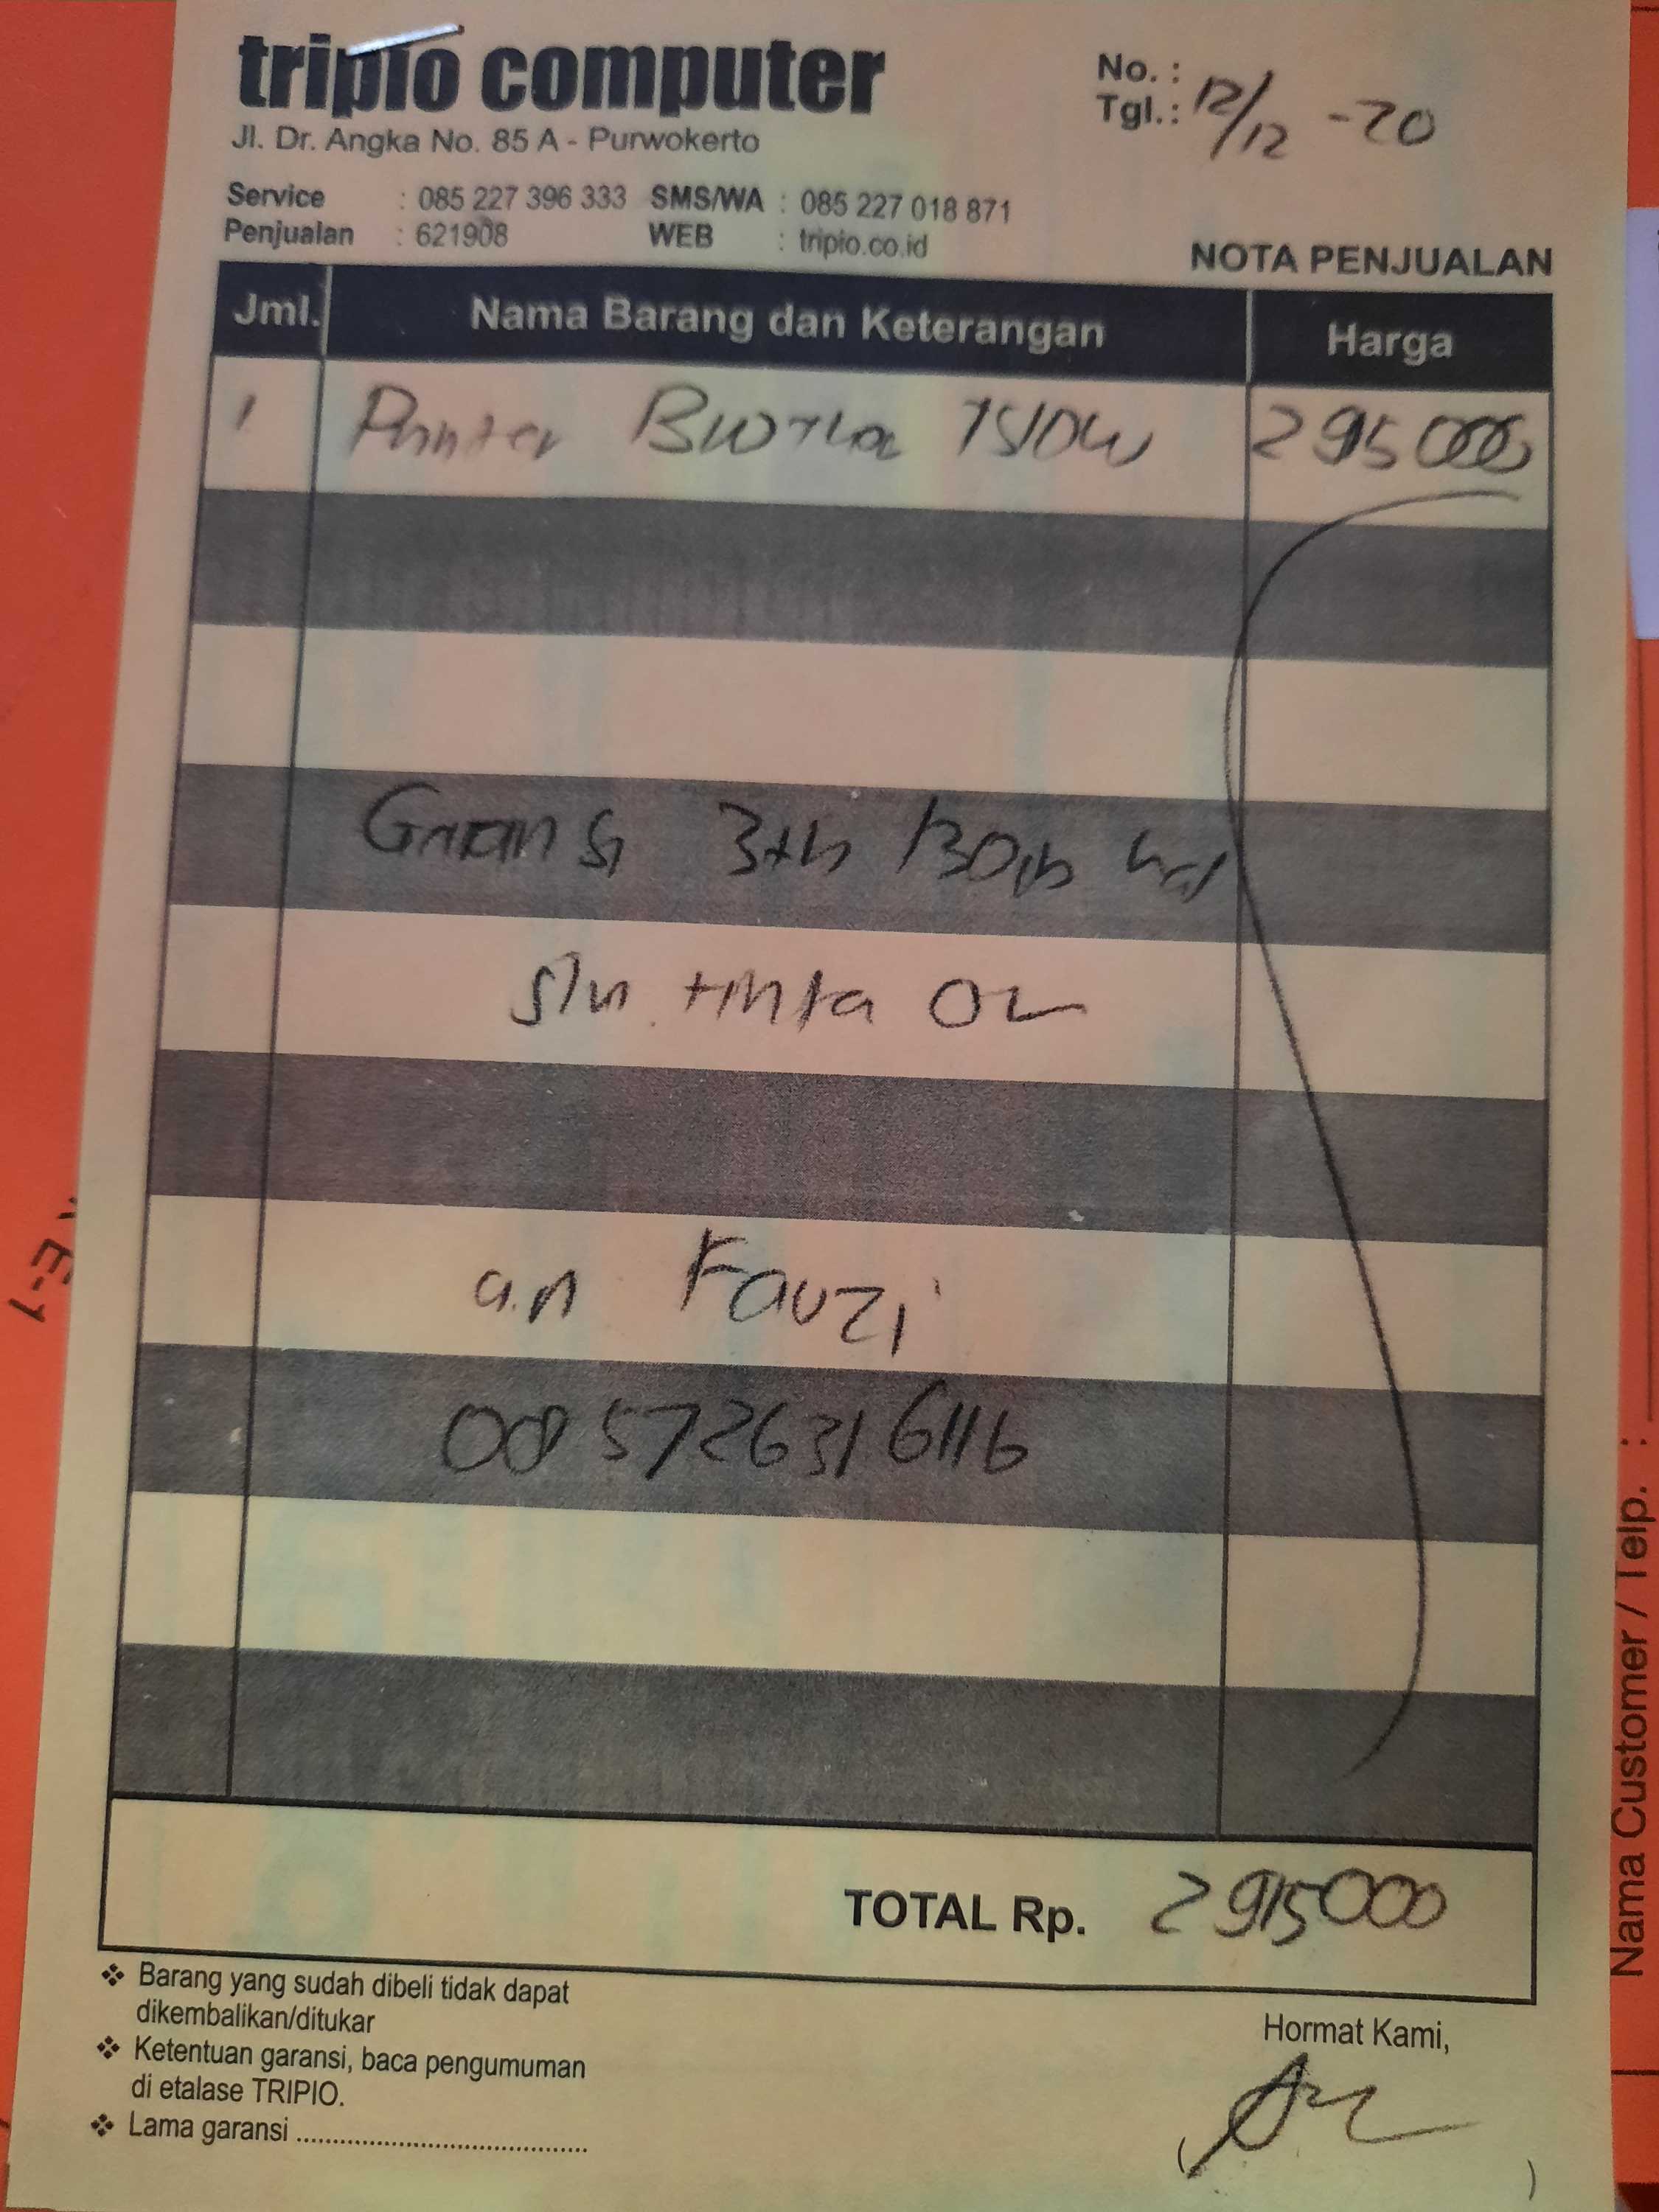 tripio computer
Jl. Dr. Angka No. 85 A - Purwokerto
No. :
Tgl.: 12/12 -20
Service : 085 227 396 333 SMS/WA : 085 227 018 871
Penjualan : 621908 WEB : tripio.co.id
NOTA PENJUALAN
Jml. Nama Barang dan Keterangan Harga
1 Printer 2915000
3th
tinta
a.n Fauzi
085726316116
TOTAL Rp. 2915000
❖ Barang yang sudah dibeli tidak dapat
dikembalikan/ditukar
❖ Ketentuan garansi, baca pengumuman
di etalase TRIPIO.
❖ Lama garansi ........................................
Hormat Kami,
( )
Nama Customer / Telp. :
E-1